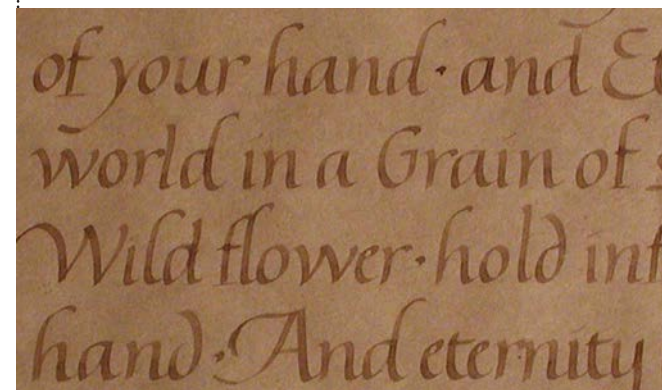 of your hand · and Et
world in a Grain of s
Wild flower · hold inf
hand · And eternity